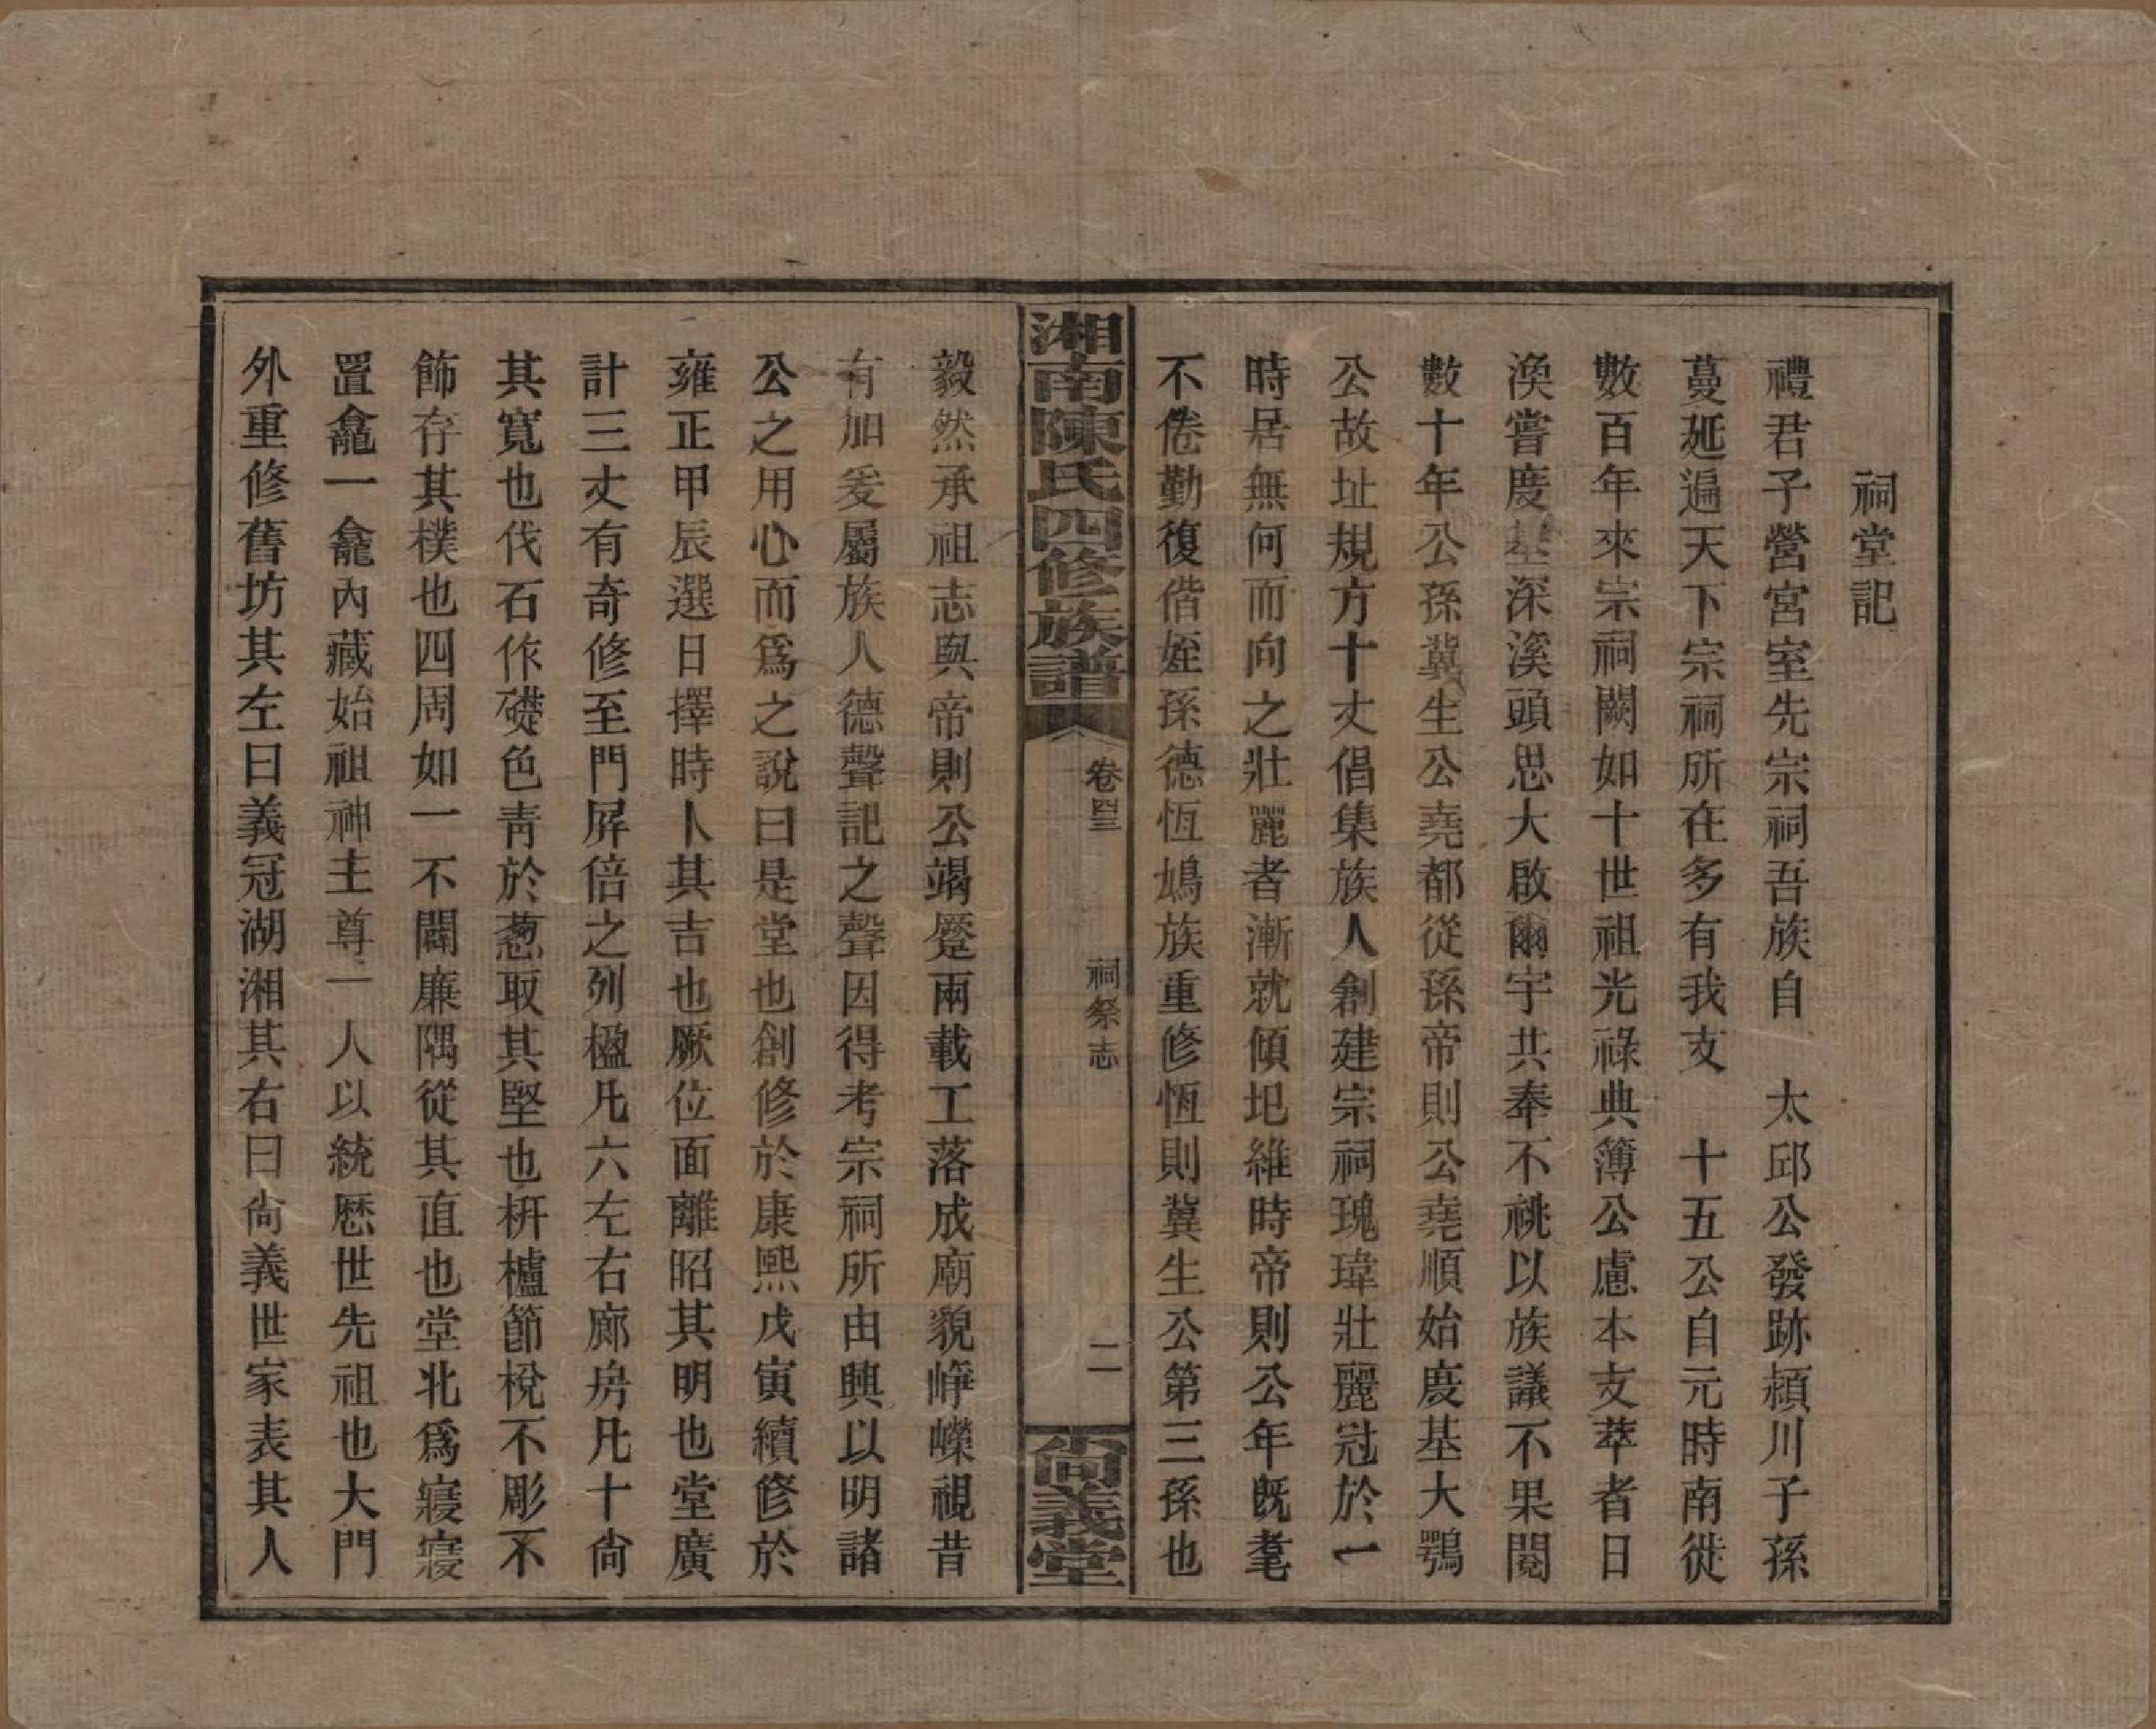 祠堂記
禮君子營宮室先宗祠吾族自　太邱公發跡潁川子孫
蔓延遍天下宗祠所在多有我支　十五公自元時南徙
數百年來宗祠闕如十世祖光祿典簿公慮本支萃者日
渙嘗度基深溪頭思大啟爾宇共奉不祧以族議不果閱
數十年公孫冀生公堯都從孫帝則公堯順始度基大鶚
公故址規方十丈倡集族人創建宗祠瑰瑋壯麗冠於一
時居無何而向之壯麗者漸就傾圮維時帝則公年既耄
不倦勤復偕姪孫德恆鳩族重修恆則冀生公第三孫也
湘南陳氏四修族譜
卷四三
祠祭志
二
尚義堂
毅然承祖志與帝則公竭蹷兩載工落成廟貌崢嶸視昔
有加爰屬族人德聲記之聲因得考宗祠所由興以明諸
公之用心而爲之說曰是堂也創修於康熙戊寅續修於
雍正甲辰選日擇時卜其吉也厥位面離昭其明也堂廣
計三丈有奇修至門屏倍之列楹凡六左右廊房凡十尙
其寬也伐石作礎色青於蔥取其堅也枅櫨節梲不彫不
飾存其樸也四周如一不闢廉隅從其直也堂北爲寢寢
置龕一龕內藏始祖神主尊一人以統歷世先祖也大門
外重修舊坊其左曰義冠湖湘其右曰尙義世家表其人